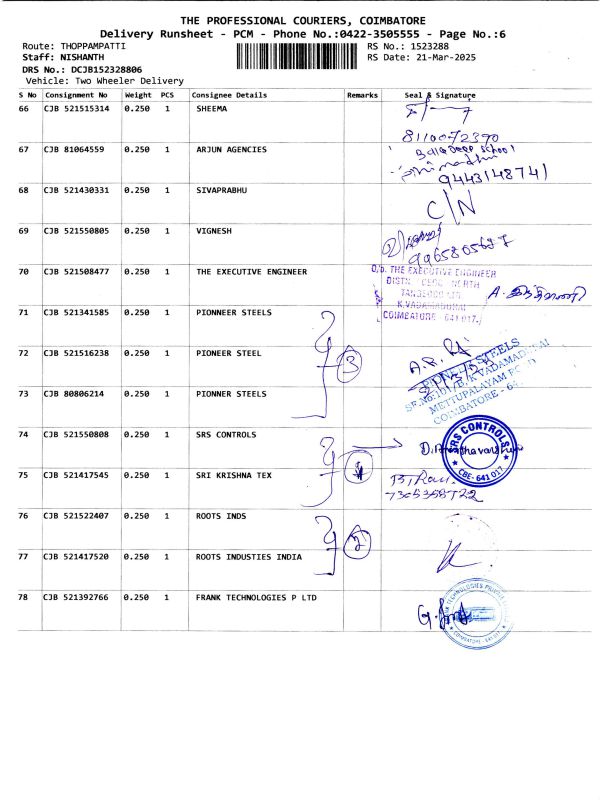 THE PROFESSIONAL COURIERS, COIMBATORE
Delivery Runsheet - PCM - Phone No.:0422-3505555 - Page No.:6
Route: THOPPAMPATTI RS No.: 1523288
Staff: NISHANTH RS Date: 21-Mar-2025
DRS No.: DCJB152328806
Vehicle: Two Wheeler Delivery
S No Consignment No Weight PCS Consignee Details Remarks Seal & Signature
66 CJB 521515314 0.250 1 SHEEMA
8110072390
67 CJB 81064559 0.250 1 ARJUN AGENCIES
School
9443148741
68 CJB 521430331 0.250 1 SIVAPRABHU
C/N
69 CJB 521550805 0.250 1 VIGNESH
70 CJB 521508477 0.250 1 THE EXECUTIVE ENGINEER
O/o. THE EXECUTIVE ENGINEER
NORTH
K.VADAMADURAI
COIMBATORE 641 017.
71 CJB 521341585 0.250 1 PIONNEER STEELS
72 CJB 521516238 0.250 1 PIONEER STEEL 3
STEELS
K.VADAMADURAI
METTUPALAYAM ROAD
COIMBATORE
73 CJB 80806214 0.250 1 PIONNER STEELS
74 CJB 521550808 0.250 1 SRS CONTROLS
SRS CONTROLS
CBE-641 017
75 CJB 521417545 0.250 1 SRI KRISHNA TEX
7305358722
76 CJB 521522407 0.250 1 ROOTS INDS
2
77 CJB 521417520 0.250 1 ROOTS INDUSTIES INDIA
78 CJB 521392766 0.250 1 FRANK TECHNOLOGIES P LTD
TECHNOLOGIES PRIVATE
COIMBATORE - 641 017